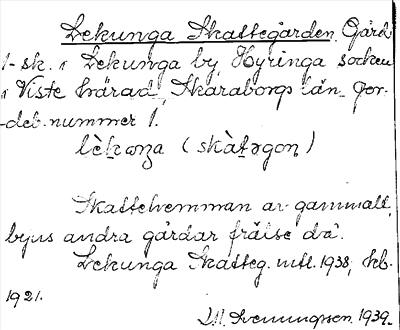 Lekunga Skattegården. Gård
1-sk. i Lekunga by, Hyringa socken
i Viste härad, Skaraborgs län. Jor-
deb. nummer 1.
lèkǝŋa (skàtǝgọn)
Skattehemman av gammalt,
byns andra gårdar frälse då.
Lekunga Skatteg. mtl. 1938, Kb.
1921.
M. Svenungsson. 1939.